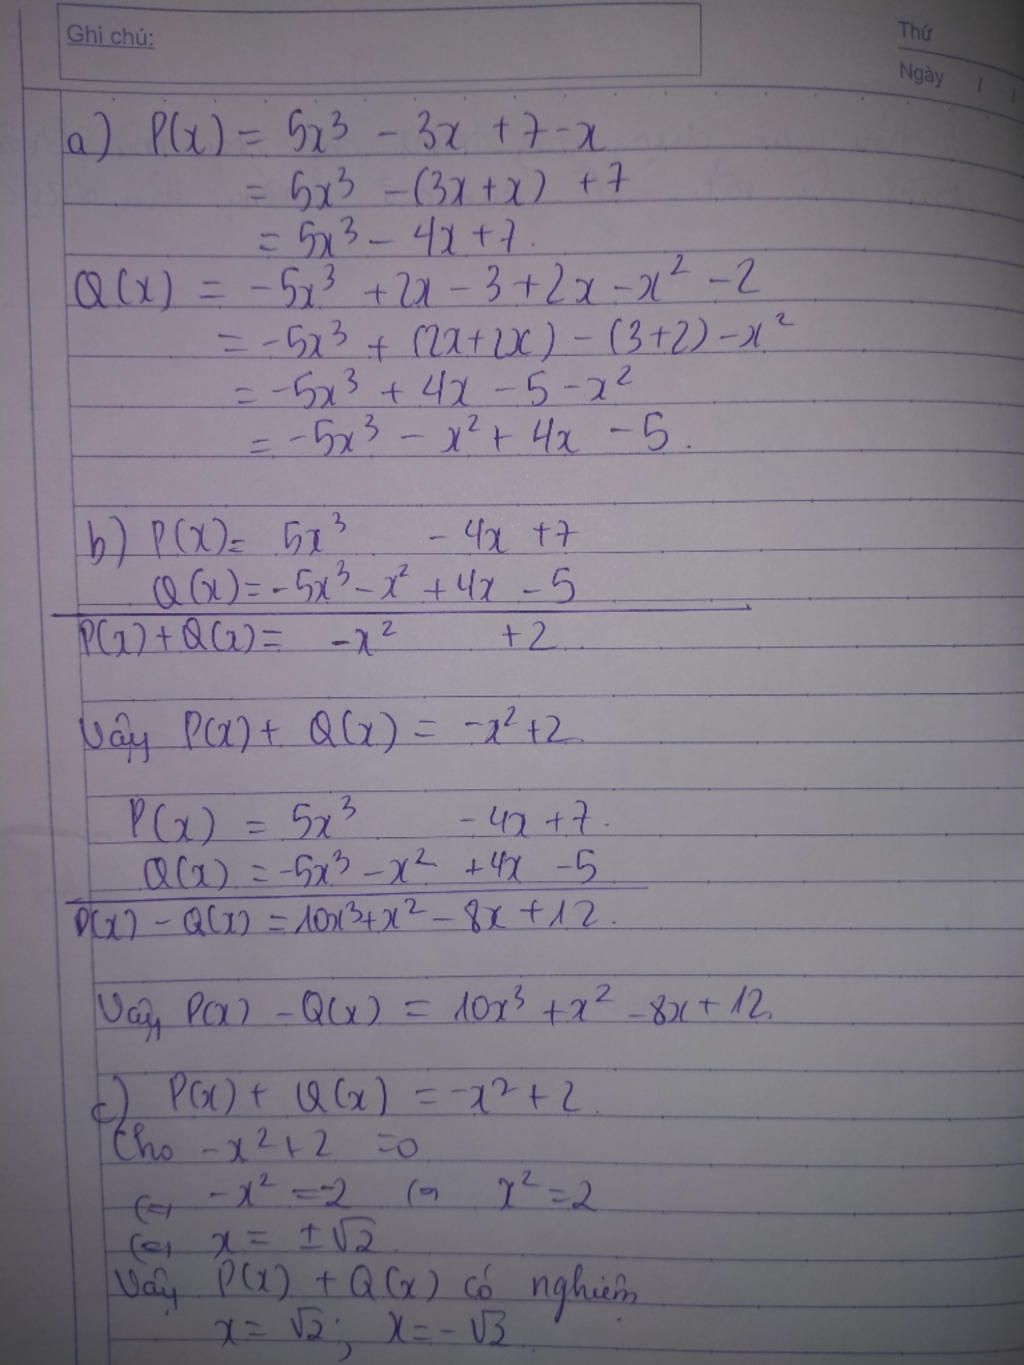 Ghi chú:
Thứ
Ngày / /
a) P(x) = 5x³ - 3x + 7 - x
= 5x³ - (3x + x) + 7
= 5x³ - 4x + 7.
Q(x) = -5x³ + 2x - 3 + 2x - x² - 2
= -5x³ + (2x + 2x) - (3 + 2) - x²
= -5x³ + 4x - 5 - x²
= -5x³ - x² + 4x - 5.
b) P(x) = 5x³ - 4x + 7
Q(x) = -5x³ - x² + 4x - 5
P(x) + Q(x) = -x² + 2.
Vậy P(x) + Q(x) = -x² + 2.
P(x) = 5x³ - 4x + 7.
Q(x) = -5x³ - x² + 4x - 5
P(x) - Q(x) = 10x³ + x² - 8x + 12.
Vậy P(x) - Q(x) = 10x³ + x² - 8x + 12.
c) P(x) + Q(x) = -x² + 2.
Cho -x² + 2 = 0
⇔ -x² = -2 ⇔ x² = 2
⇔ x = ±√2.
Vậy P(x) + Q(x) có nghiệm
x = √2; x = -√3